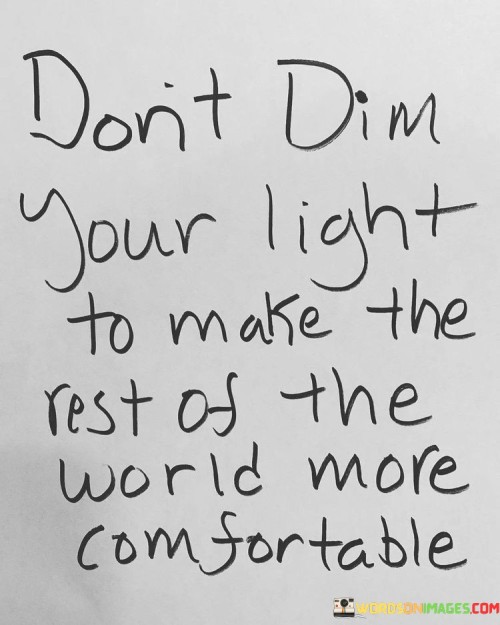 Don't Dim
Your light
to make the
rest of the
world more
comfortable
WORDSONIMAGES.COM